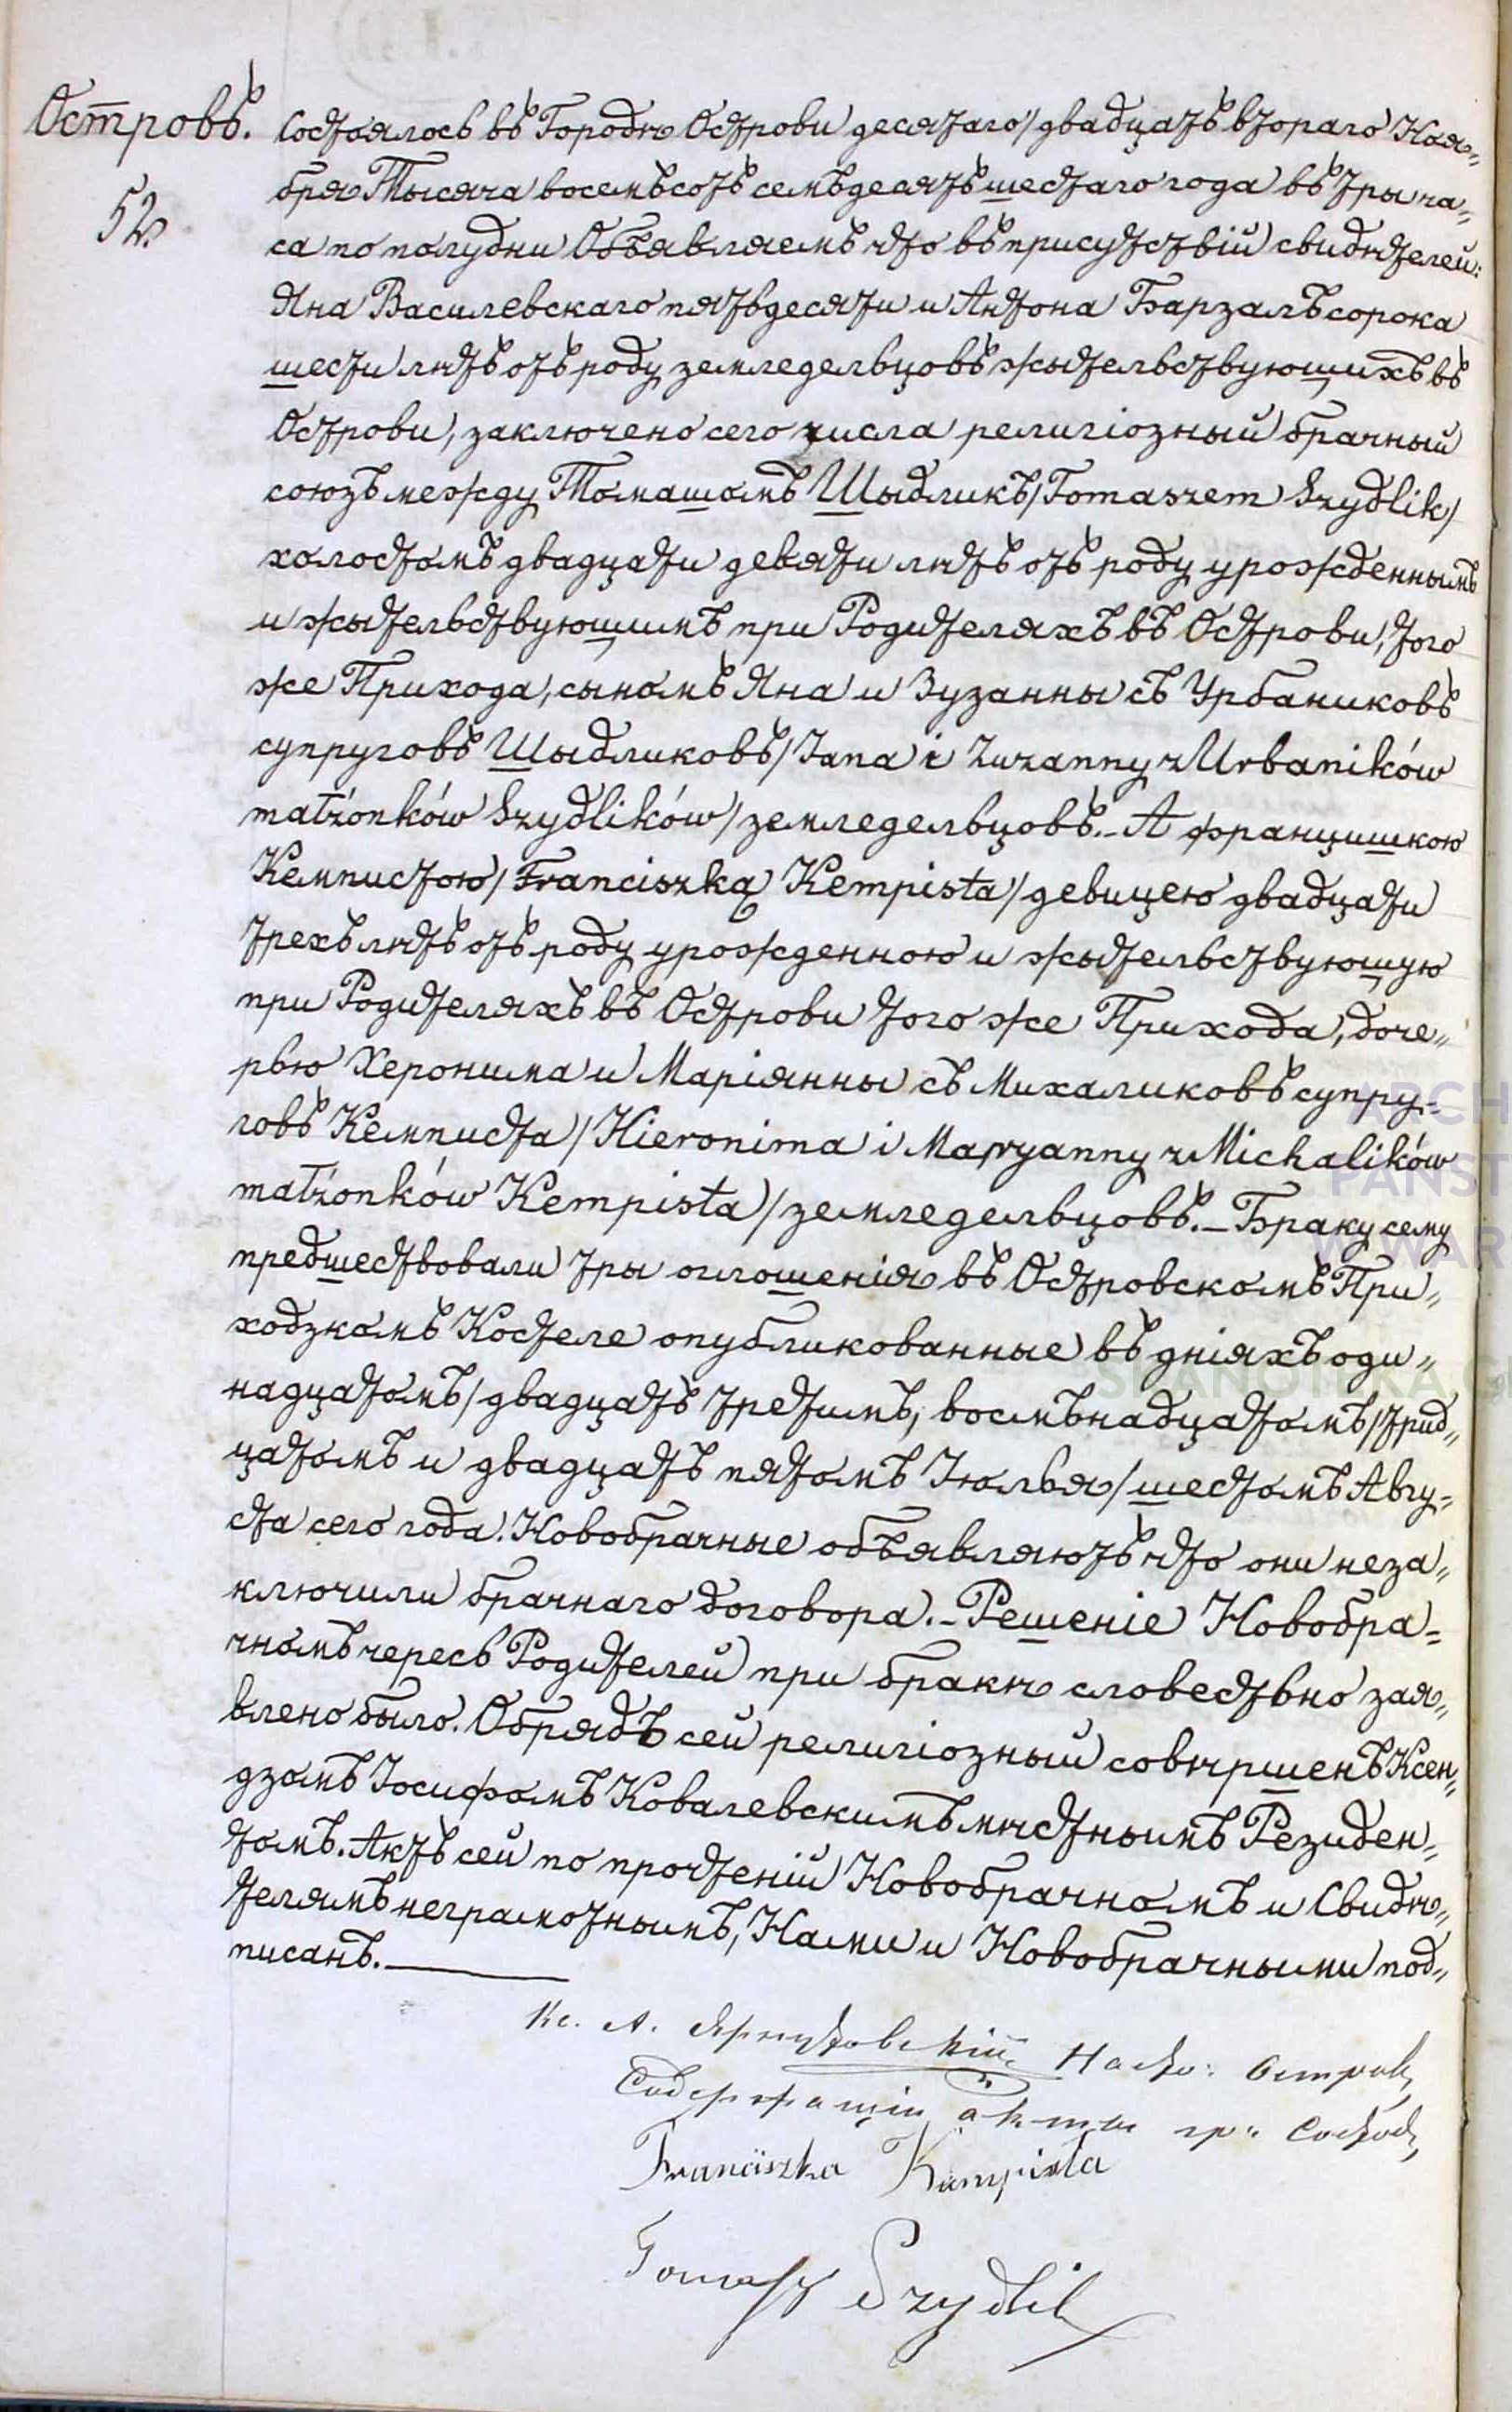 Островъ.
52.
Состоялось въ Городѣ Острови десятаго/двадцать втораго Ноя„
бря Тысяча восемьсотъ семьдесятъ шестаго года въ три ча„
са по полудни Объявляемъ что въ присутствій свидѣтелей:
Яна Василевскаго пятьдесяти и Антона Барзалъ сорока
шести лѣтъ отъ роду земледельцовъ жытельствующихъ въ
Острови, заключено сего числа религіозный брачный
союзъ между Томашомъ Шыдликъ/Tomaszem Szydlik/
холостомъ двадцати девяти лѣтъ отъ роду урожденнымъ
и жытельствующимъ при Родителяхъ въ Острови, того
же Прихода, сыномъ Яна и Зузанны съ Урбаниковъ
супруговъ Шыдликовъ/Jana i Zuzanny z Urbaników
małżonków Szydlików/земледельцовъ.- А Францишкою
Кемпистою/Franciszką Kempista/девицею двадцати
трехъ лѣтъ отъ роду урожденною и жытельствующую
при Родителяхъ въ Острови того же Прихода, доче„
рью Херонима и Маріянны съ Михаликовъ супру„
говъ Кемписта/Hieronima i Maryanny z Michalików
małżonków Kempista/земледельцовъ.- Браку сему
предшествовали три оглошенія въ Островскомъ При„
ходзкомъ Костеле опубликованные въ дніяхъ оди„
надцатомъ/двадцать третимъ, восмьнадцатомъ/трид„
цатомъ и двадцать пятомъ Іюлья/шестомъ Авгу„
ста сего года. Новобрачные объявляютъ что они неза„
ключили брачнаго договора.- Решеніе Новобра„
чномъ чересь Родителей при бракѣ словестьно зая„
влено было. Обрядъ сей религіозный совѣршенъ Ксен„
дзомъ Іосифомъ Ковалевскимъ мѣстнымъ Резиден„
томъ. Актъ сей по прочтеній Новобрачномъ и Свидѣ„
телямъ неграмотнымъ, Нами и Новобрачными под„
писанъ.
Кс. А. Насто: Остров
Содержащій акты гр: Состоя
Franciszka Kempista
Tomasz Szydlik
ARCH
PAŃST
W WAR
SKANOTEKA G